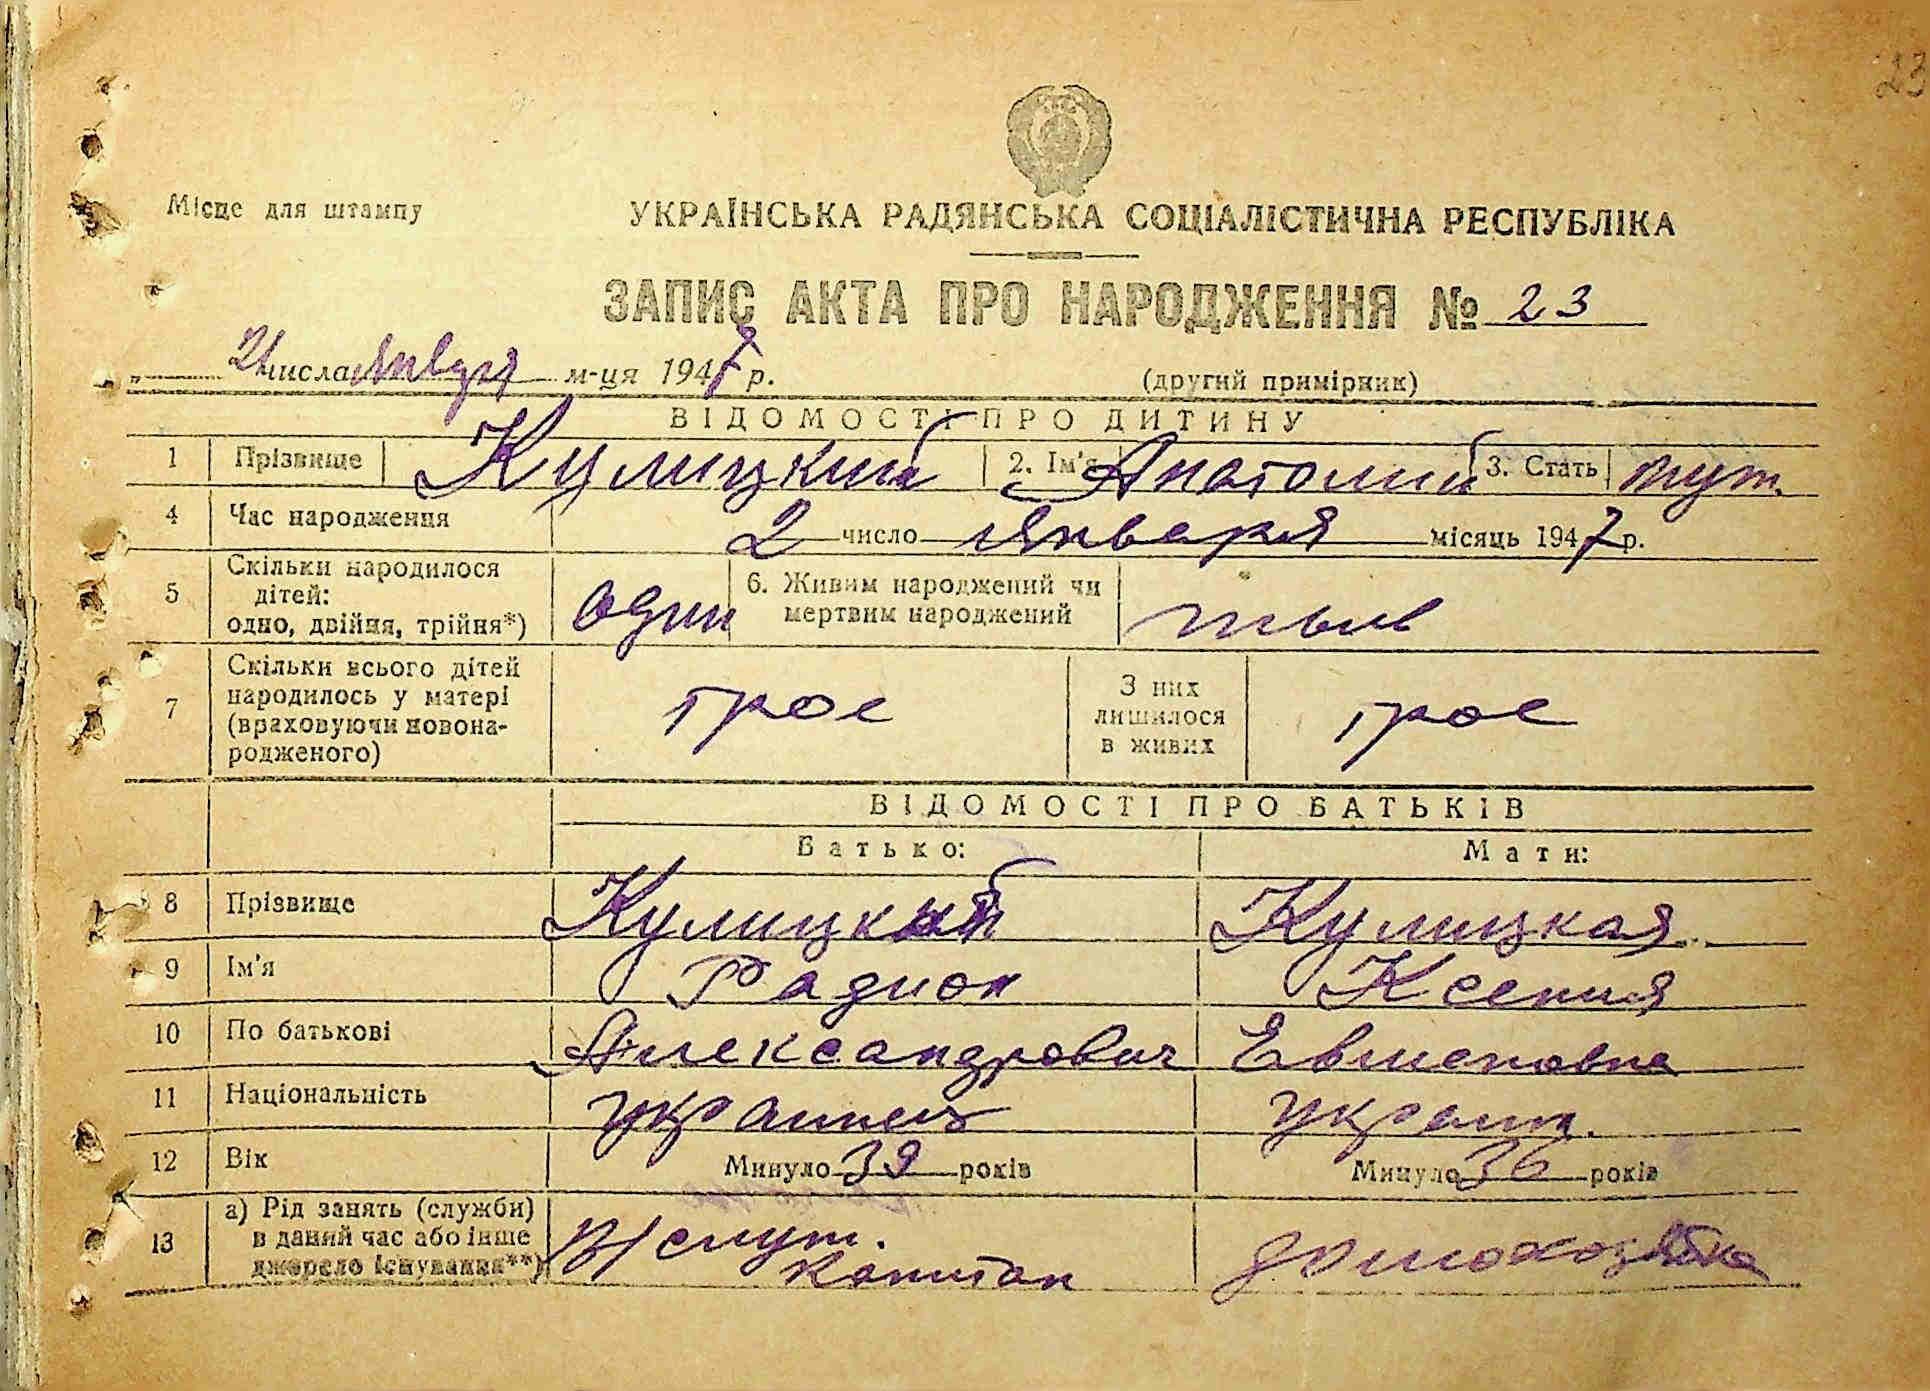 23
Місце для штампу
УКРАЇНСЬКА РАДЯНСЬКА СОЦІАЛІСТИЧНА РЕСПУБЛІКА
ЗАПИС АКТА ПРО НАРОДЖЕННЯ № 23
„ 21 числа января м-ця 1947 р.
(другий примірник)
ВІДОМОСТІ ПРО ДИТИНУ
1 Прізвище Кулицкий 2. Ім'я Анатолий 3. Стать муж.
4 Час народження 2 число января місяць 1947 р.
5 Скільки народилося дітей: одно, двійня, трійня*) один 6. Живим народжений чи мертвим народжений жив
7 Скільки всього дітей народилось у матері (враховуючи новонародженого) трое З них лишилося в живих трое
ВІДОМОСТІ ПРО БАТЬКІВ
Батько: Мати:
8 Прізвище Кулицкий Кулицкая
9 Ім'я Радион Ксения
10 По батькові Александрович
11 Національність украинец украин.
12 Вік Минуло 39 років Минуло 36 років
13 а) Рід занять (служби) в даний час або інше джерело існування**) В/служ. капитан домохозяйка